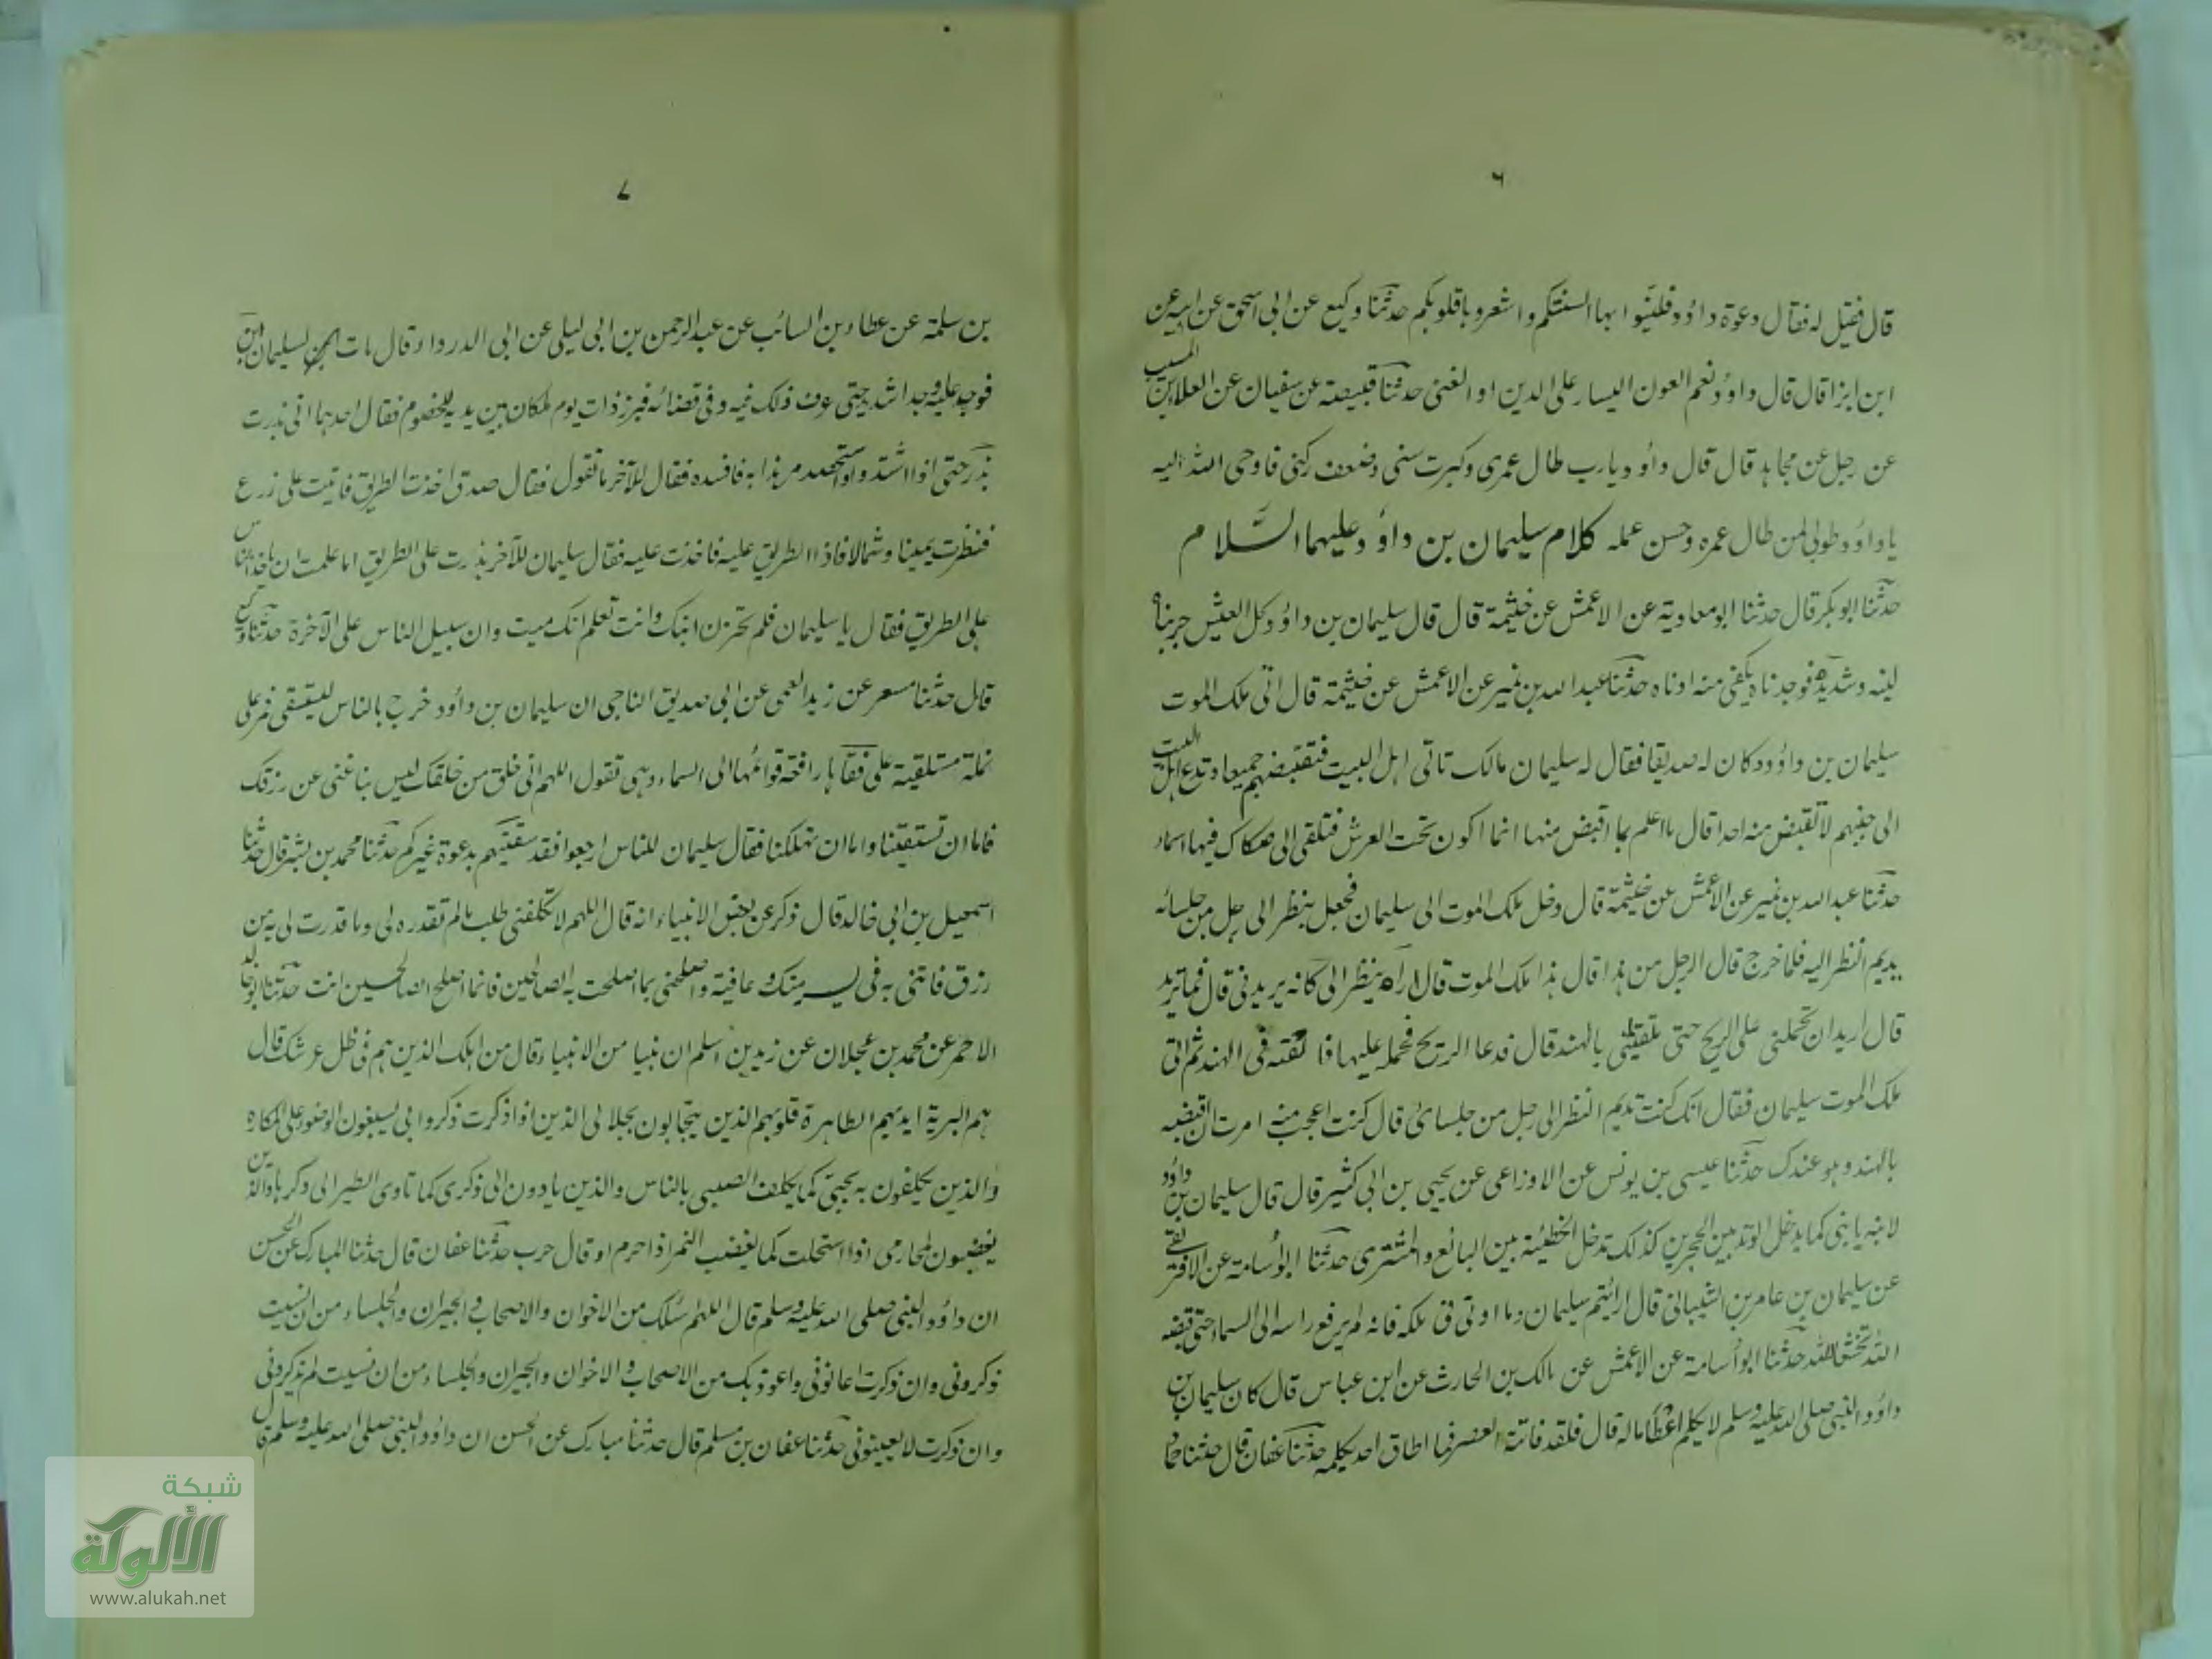 ٦
قال فقيل له فقال دعوة داؤد فلينوا بها السنتكم واشعروها قلوبكم حدثنا وكيع عن ابى اسحق عن ابيه عن
ابن ابزا قال قال داؤد نعم العون اليسار على الدين او الغنى حدثنا قبيصة عن سفيان عن العلاء بن المسيب
عن رجل عن مجاهد قال قال داؤد يارب طال عمرى وكبرت سنى وضعف ركنى فاوحى الله اليه
ياداؤد طوبى لمن طال عمره وحسن عمله كلام سليمان بن داؤد عليهما السلام
حدثنا ابو بكر قال حدثنا ابو معاوية عن الاعمش عن خيثمة قال قال سليمان بن داؤد كل العيش جربناه
لينه وشديده فوجدناه يكفى منه ادناه حدثنا عبد الله بن نمير عن الاعمش عن خيثمة قال اتى ملك الموت
سليمان بن داؤد وكان له صديقا فقال له سليمان مالك تاتى اهل البيت فتقبضهم جميعا وتدع اهل البيت
الى جنبهم لا تقبض منه احدا قال ما اعلم بما اقبض منها انما اكون تحت العرش فتلقى الى صكاك فيها اسماء
حدثنا عبد الله بن نمير عن الاعمش عن خيثمة قال دخل ملك الموت الى سليمان فجعل ينظر الى رجل من جلسائه
يديم النظر اليه فلما خرج قال الرجل من هذا قال هذا ملك الموت قال اراه ينظر الى كانه يريدنى قال فما تريد
قال اريد ان تحملنى على الريح حتى تلقينى بالهند قال فدعا الريح فحمله عليها فالقته فى الهند ثم اتى
ملك الموت سليمان فقال انك كنت تديم النظر الى رجل من جلسائى قال كنت اعجب منه امرت ان اقبضه
بالهند وهو عندك حدثنا عيسى بن يونس عن الاوزاعى عن يحيى بن ابى كثير قال قال سليمان بن داؤد
لابنه يا بنى كما يدخل الوتد بين الحجرين كذلك تدخل الخطيئة بين البائع والمشترى حدثنا ابو اسامة عن الافريقى
عن سليمان بن عامر بن الشيبانى قال ارائتم سليمان وما اوتى فى ملكه فانه لم يرفع راسه الى السماء حتى قبضه
الله تخشعا لله حدثنا ابو اسامة عن الاعمش عن مالك بن الحارث عن ابن عباس قال كان سليمان بن
داؤد النبى صلى الله عليه وسلم لا يكلم اعظاما له قال فلقد فاتته العصر فما اطاق احد يكلمه حدثنا عفان قال حدثنا حماد
٧
بن سلمة عن عطاء بن السائب عن عبد الرحمن بن ابى ليلى عن ابى الدرداء قال مات ابن لسليمان
فوجد عليه وجدا شديدا حتى عرف ذلك فيه وفى قضائه فبرز ذات يوم لمكان بين يديه للخصوم فقال احدهما انى بذرت
بذر حتى اذا اشتد واستحصد مر هذا به فافسده فقال للآخر ما تقول فقال صدق اخذت الطريق فاتيت على زرع
فنظرت يمينا وشمالا فاذا الطريق عليه فاخذت عليه فقال سليمان للآخر بذرت على الطريق اما علمت ان ياخذ الناس
على الطريق فقال يا سليمان فلم تحزن ابنك وانت تعلم انك ميت وان سبيل الناس على الآخرة حدثنا وكيع
قال حدثنا مسعر عن زيد العمى عن ابى صديق الناجى ان سليمان بن داؤد خرج بالناس ليستسقى فمر على
نملة مستلقية على قفاها رافعة قوائمها الى السماء وهى تقول اللهم انى خلق من خلقك ليس بنا غنى عن رزقك
فاما ان تسقينا واما ان تهلكنا فقال سليمان للناس ارجعوا فقد سقيتم بدعوة غيركم حدثنا محمد بن بشر قال حدثنا
اسمعيل بن ابى خالد قال ذكر عن بعض الانبياء انه قال اللهم لا تكلفنى طلب ما لم تقدره لى وما قدرت لى من
رزق فاتنى به فى يسر منك وعافية واصلحنى بما اصلحت به الصالحين فانما اصلح الصالحين انت حدثنا ابو خالد
الاحمر عن محمد بن عجلان عن زيد بن اسلم ان نبيا من الانبياء قال من اهلك الذين هم فى ظل عرشك قال
هم البرية ايديهم الطاهرة قلوبهم الذين يتحابون بجلالى الذين اذا ذكرت ذكروا بى يسبغون الوضوء على المكاره
والذين يكلفون بحبى كما يكلف الصبى بالناس والذين ياوون الى ذكرى كما تاوى الطير الى وكرها والذين
يغضبون لمحارمى اذا استحلت كما يغضب النمر اذا حرم او قال حرب حدثنا عفان قال حدثنا المبارك عن الحسن
ان داؤد النبى صلى الله عليه وسلم قال اللهم اسئلك من الاخوان والاصحاب والجيران والجلساء من ان نسيت
ذكرونى وان ذكرت اعانونى واعوذ بك من الاصحاب والاخوان والجيران والجلساء من ان نسيت لم يذكرونى
وان ذكرت لا يعينونى حدثنا عفان بن مسلم قال حدثنا مبارك عن الحسن ان داؤد النبى صلى الله عليه وسلم قال
شبكة
الألوكة
www.alukah.net